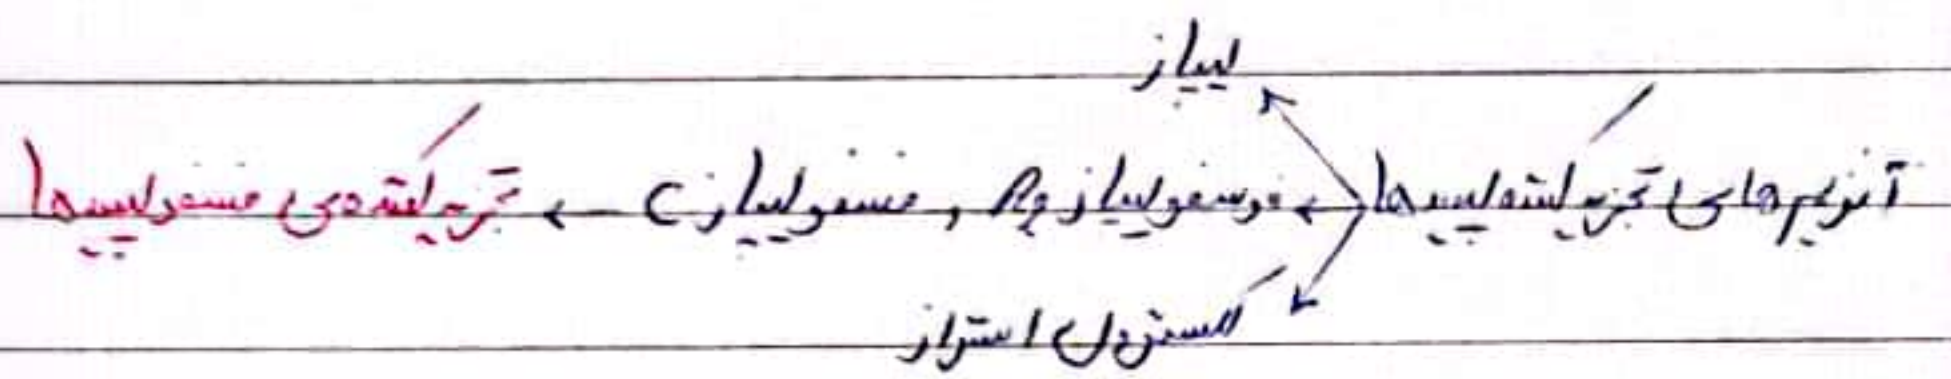 لیپاز
آنزیم‌های تجزیه‌کننده لیپیدها → فوسفولیپاز A₂ و فسفولیپاز C → تجزیه‌کننده‌ی فسفولیپیدها
کلسترول استراز